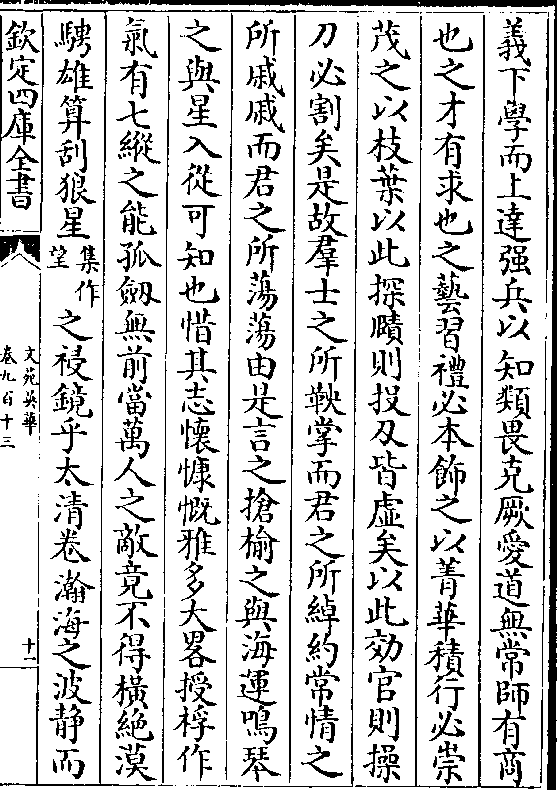 義下學而上達强兵以知類畏克厥愛道無常師有商
也之才有求也之藝習禮必本飾之以菁華積行必崇
茂之以枝葉以此探賾則投刃皆虛矣以此効官則操
刀必割矣是故羣士之所鞅掌而君之所綽約常情之
所戚戚而君之所蕩蕩由是言之搶榆之與海運鳴琴
之與星入從可知也惜其志懷慷慨雅多大畧授桴作
氣有七縱之能孤劒無前當萬人之敵竟不得橫絶漠
騁雄算刮狼星集作望之祲鏡乎太清卷瀚海之波静而
欽定四庫全書
文苑英華
卷九百十三
十一